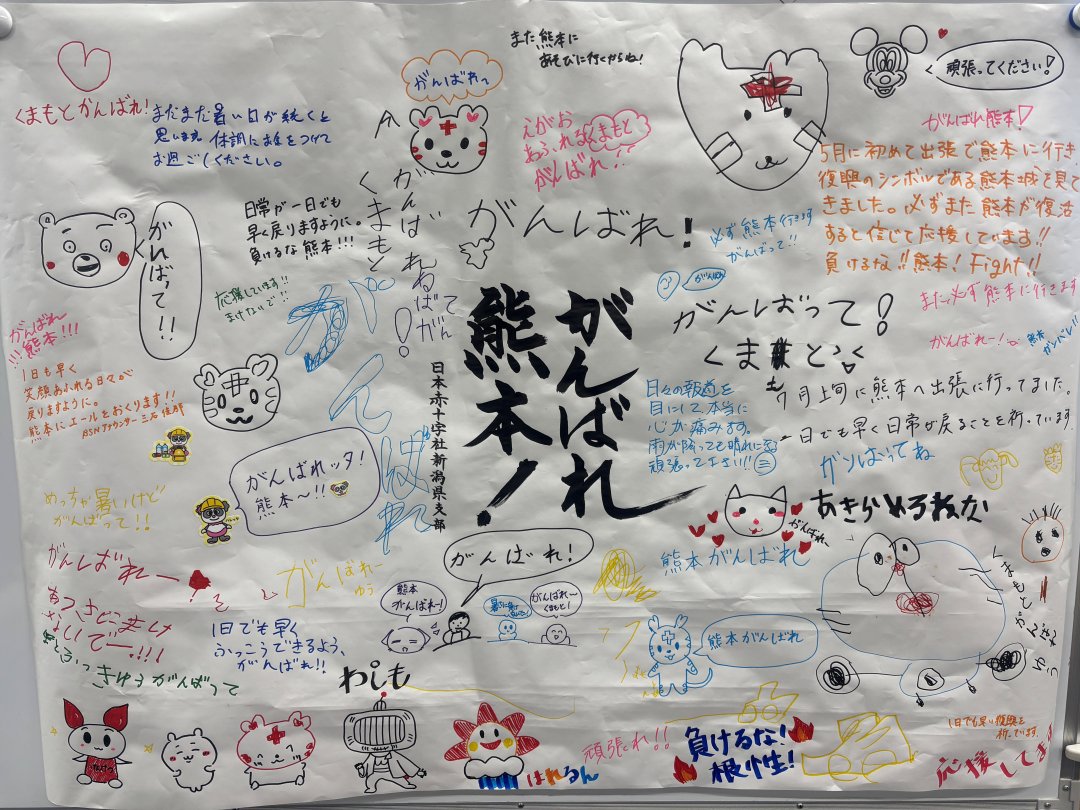 くまもとがんばれ!
まだまだ暑い日が続くと
思います。体調にお気をつけて
お過ごしください。
がんばれっ
また熊本に
あそびに行くからね!
えがお
あふれるくまもと
がんばれ!!
頑張ってください!
がんばれ熊本!
5月に初めて出張で熊本に行き、
復興のシンボルである熊本城を見て
きました。必ずまた熊本が復活
すると信じて応援しています!!
負けるな!!熊本!Fight!!
また必ず熊本に行きます
がんばって!!
日常が一日でも
早く戻りますように。
負けるな熊本!!!
くまもと
がんばれ
がんばれ!
必ず熊本行きます
がんばって!!
がんばれ
応援しています!!
まけないで!!
がんばれ
熊本!!!
がんばれ
がんばれ
熊本!
日本赤十字社新潟県支部
がんばって!
くまもと
がんばれー!
熊本
ガンバレ!!
1日も早く
笑顔あふれる日々が
戻りますように。
熊本にエールをおくります!!
BSNアナウンサー
7月上旬に熊本へ出張に行ってました。
一日でも早く日常が戻ることを祈っています
日々の報道を
目にして本当に
心が痛みます。
雨が降っても晴れになる
頑張って下さい!!
がんばってね
がんばれッタ!
熊本〜!!
めっちゃ暑いけど
がんばって!!
あきらめるねな
がんばれー
がんばれ!
熊本がんばれ
がんばれー
がんばれー
ゅう
熊本
がんばれー!
がんばれ〜
くまもと!
くまもと
がんばれ
ゆう
1日でも早く
ふっこうできるよう、
がんばれ!!
熊本がんばれ
ふっきゅうがんばって
わしも
はれるん
頑張れ!!
負けるな!
根性!
1日でも早い復興を
祈ってます
応援してます